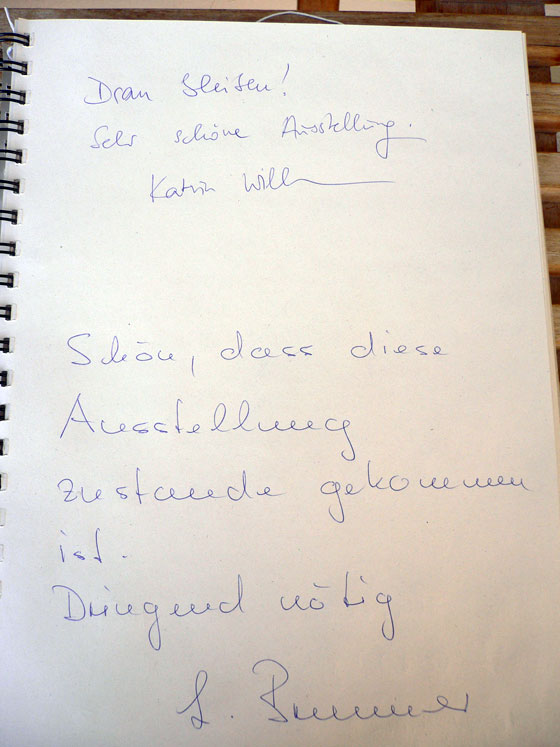 Dran bleiben!
Sehr schöne Ausstellung.
Katrin
Schön, dass diese
Ausstellung
zustande gekommen
ist.
Dringend nötig